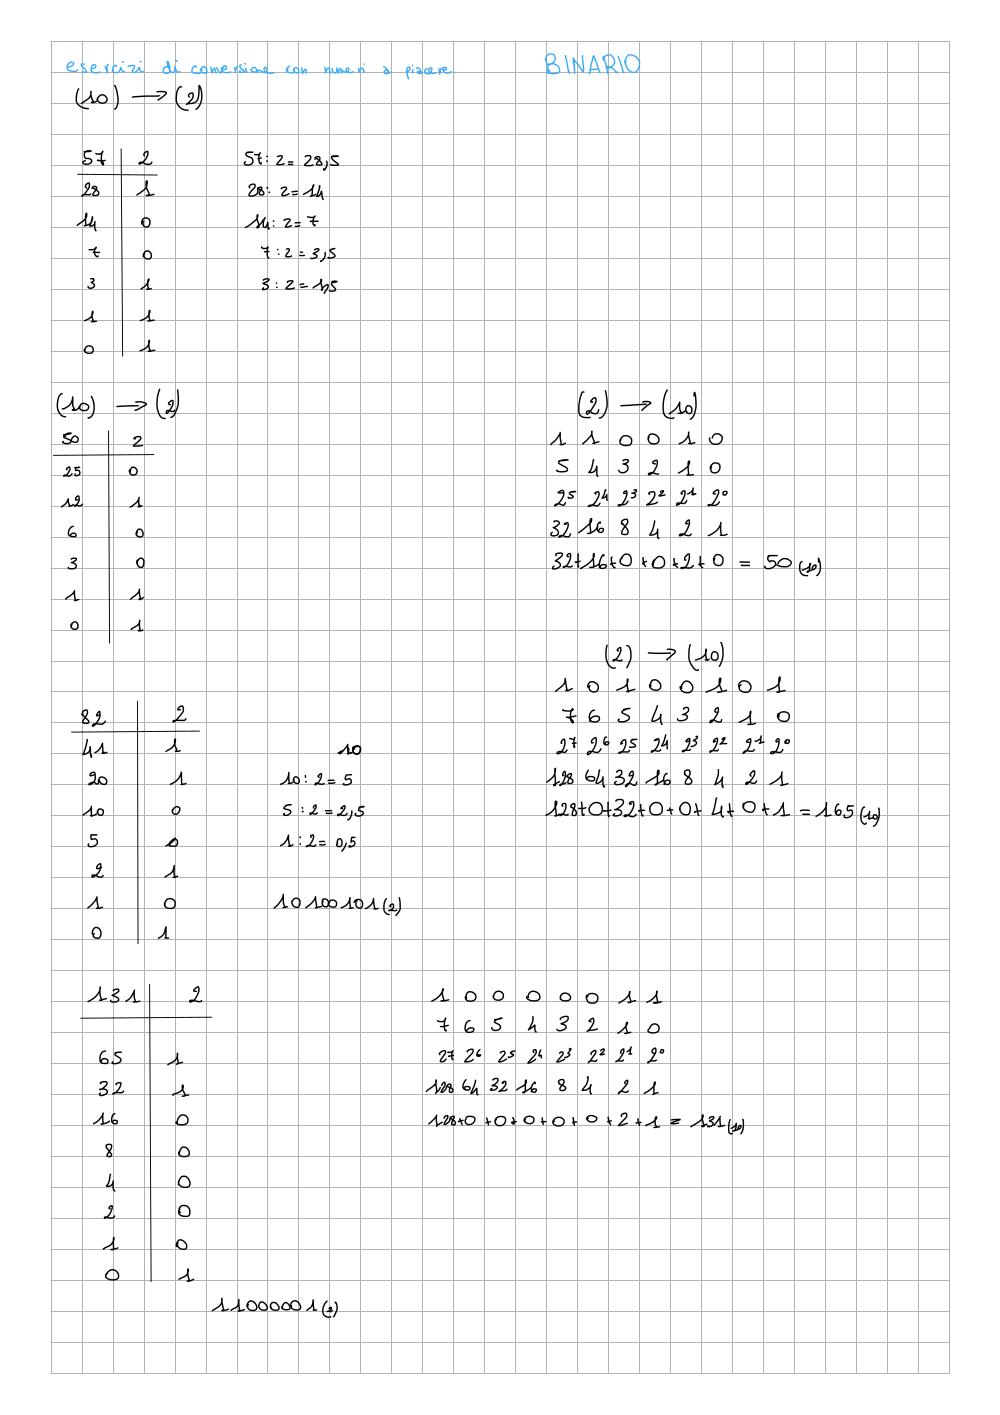 esercizi di conversione con numeri a piacere
BINARIO
(10) → (2)
57 | 2
28 | 1
14 | 0
7 | 0
3 | 1
1 | 1
0 | 1
57 : 2 = 28,5
28 : 2 = 14
14 : 2 = 7
7 : 2 = 3,5
3 : 2 = 1,5
(10) → (2)
50 | 2
25 | 0
12 | 1
6 | 0
3 | 0
1 | 1
0 | 1
(2) → (10)
1 1 0 0 1 0
5 4 3 2 1 0
2⁵ 2⁴ 2³ 2² 2¹ 2⁰
32 16 8 4 2 1
32+16+0+0+2+0 = 50 (10)
(2) → (10)
1 0 1 0 0 1 0 1
7 6 5 4 3 2 1 0
2⁷ 2⁶ 2⁵ 2⁴ 2³ 2² 2¹ 2⁰
128 64 32 16 8 4 2 1
128+0+32+0+0+4+0+1 = 165 (10)
82 | 2
41 | 1
20 | 1
10 | 0
5 | 0
2 | 1
1 | 0
0 | 1
10
10 : 2 = 5
5 : 2 = 2,5
1 : 2 = 0,5
10100101 (2)
131 | 2
65 | 1
32 | 1
16 | 0
8 | 0
4 | 0
2 | 0
1 | 0
0 | 1
11000001 (2)
1 0 0 0 0 0 1 1
7 6 5 4 3 2 1 0
2⁷ 2⁶ 2⁵ 2⁴ 2³ 2² 2¹ 2⁰
128 64 32 16 8 4 2 1
128+0+0+0+0+0+2+1 = 131 (10)